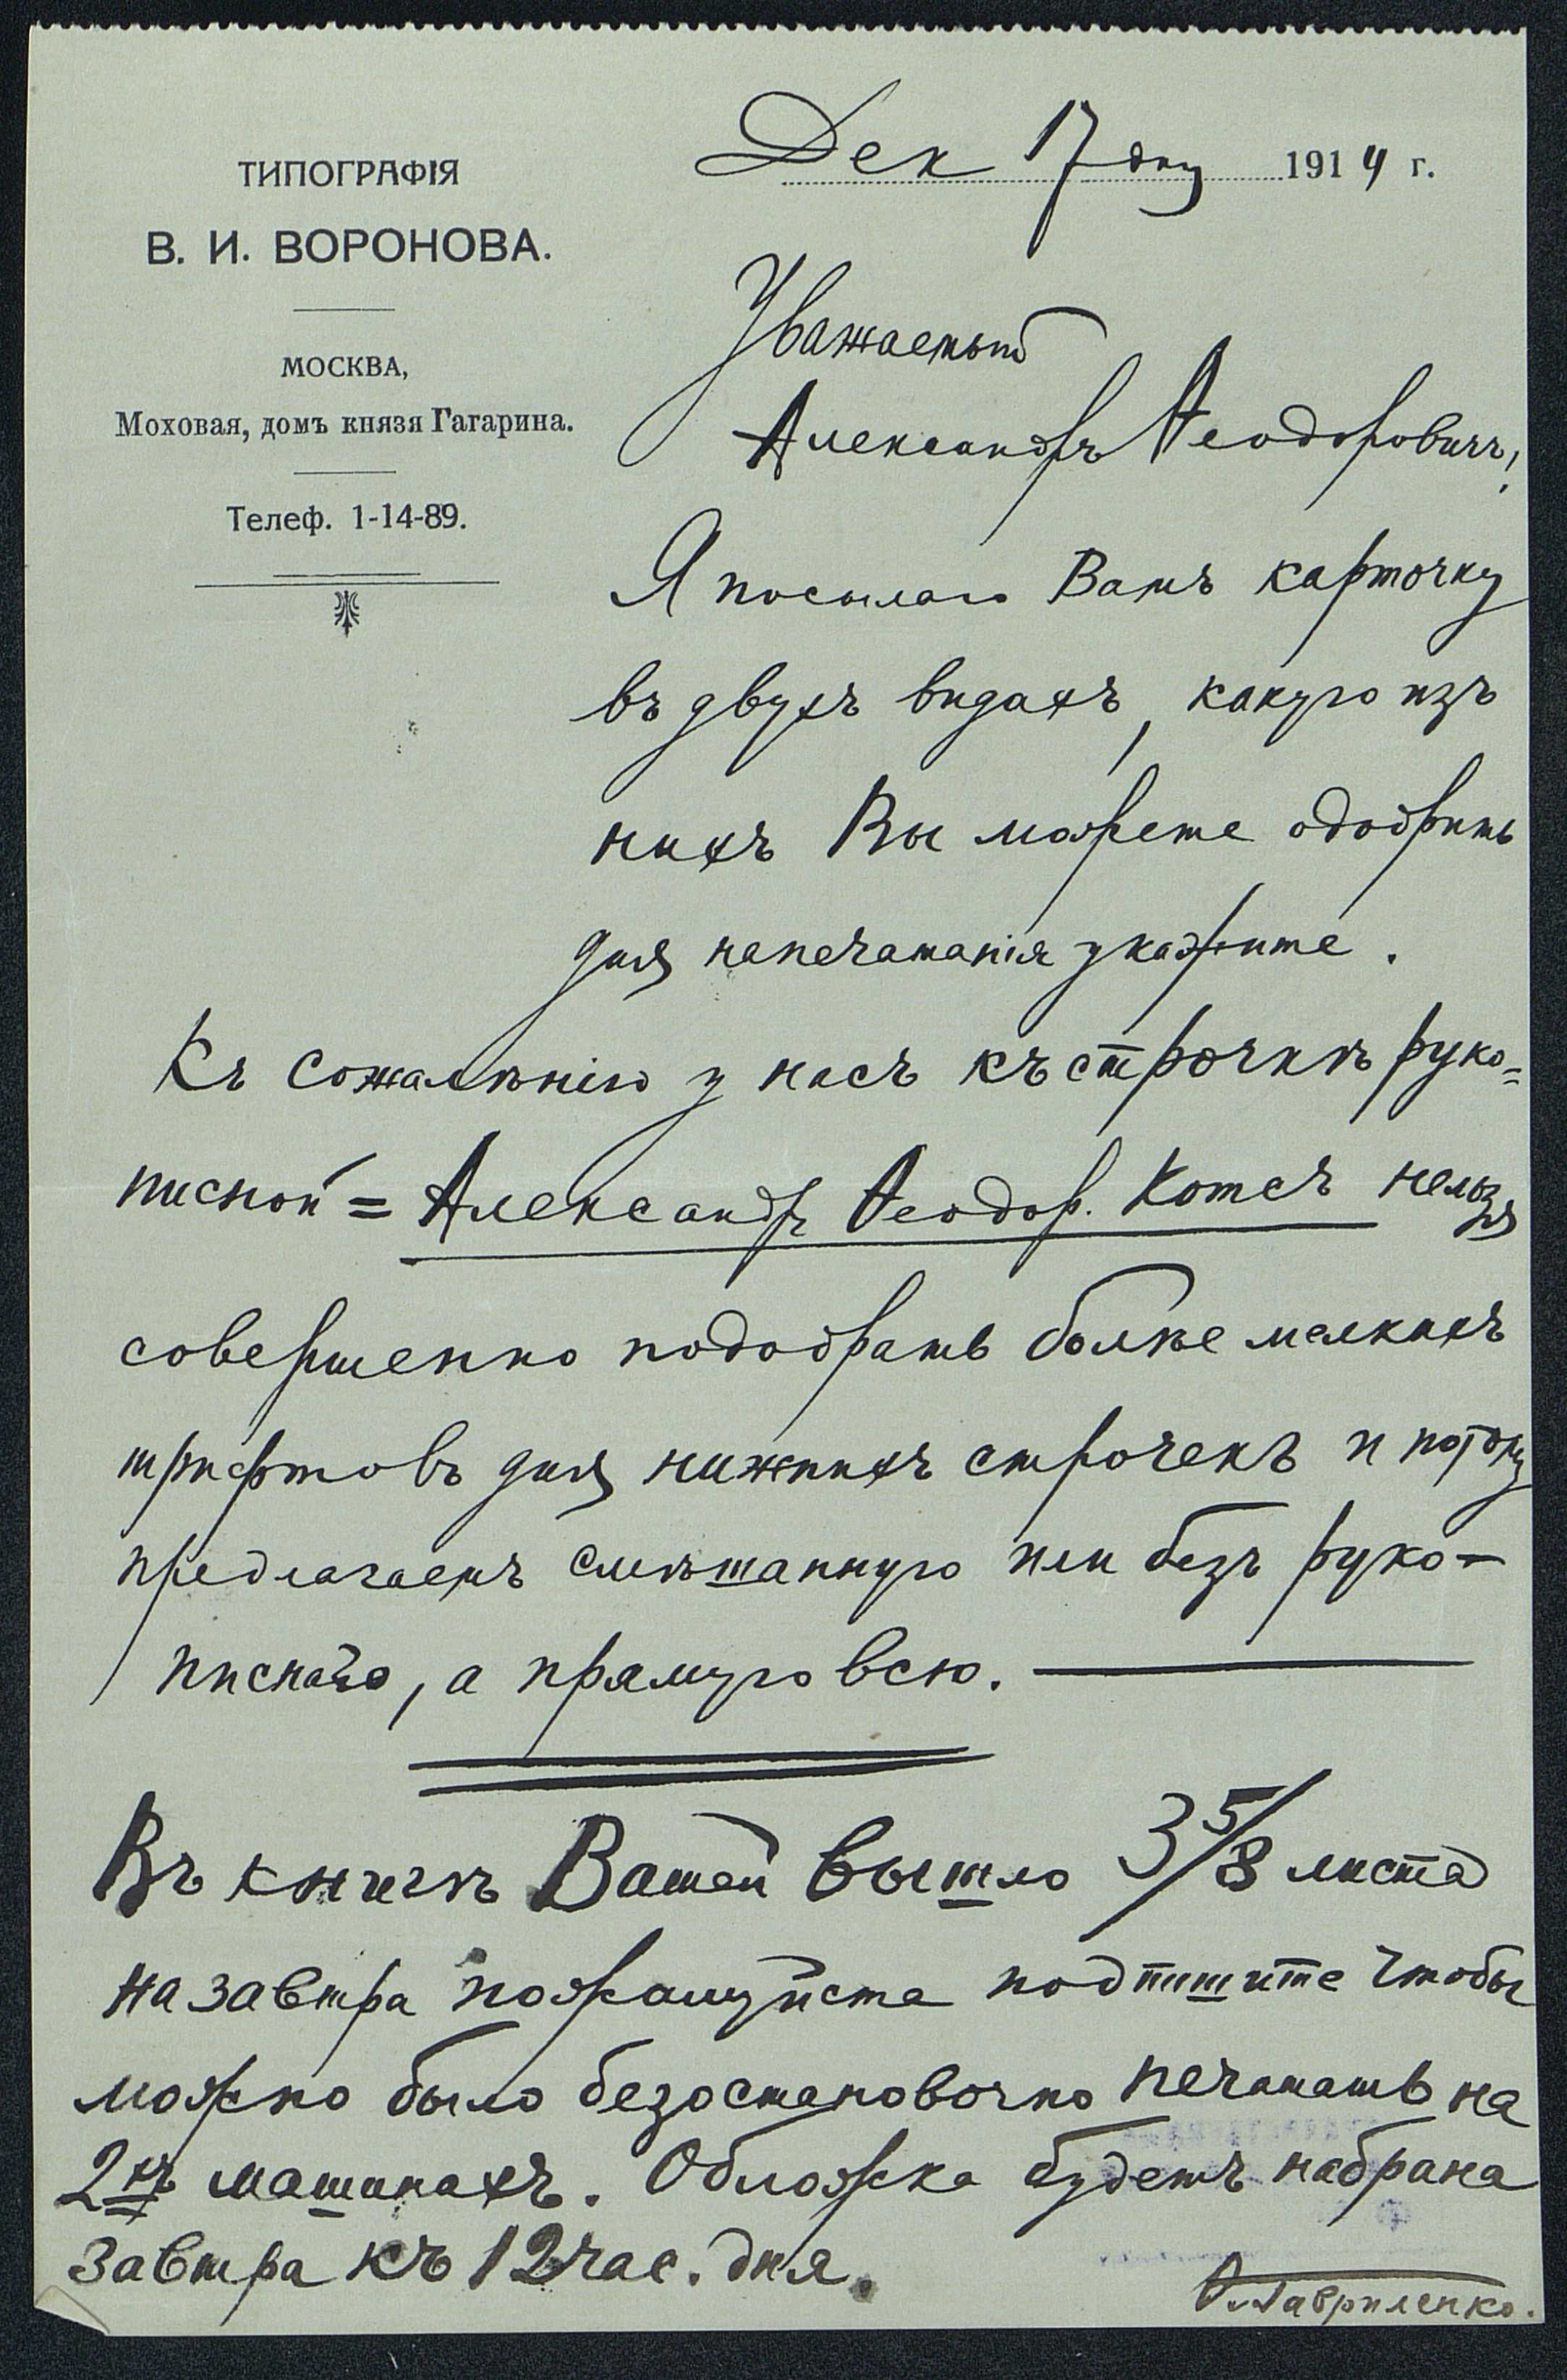 ТИПОГРАФІЯ
В. И. ВОРОНОВА.
МОСКВА,
Моховая, домъ князя Гагарина.
Телеф. 1-14-89.
Дек 17 дня 1914 г.
Уважаемый
Александръ Ѳеодоровичъ!
Я посылаю Вамъ карточку
въ двухъ видахъ, какую изъ
нихъ Вы можете одобрить
для напечатанія укажите.
Къ сожалѣнію у насъ къ строчкѣ руко=
писной = Александръ Ѳеодор. Котсъ нельзя
совершенно подобрать болѣе мелкихъ
шрифтовъ для нижнихъ строчекъ и потому
предлагаемъ смѣшанную или безъ руко-
писнаго, а прямую всю.
Въ книгѣ Вашей вышло 3 5/8 листа
на завтра пожалуйста подпишите чтобы
можно было безостановочно печатать на
2хъ машинахъ. Обложка будетъ набрана
завтра къ 12 час. дня.
Гавриленко.